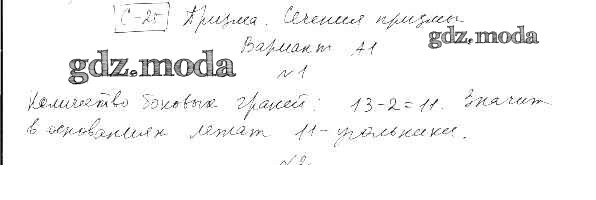 С-25 Призма. Сечения призмы
Вариант А1
gdz.moda
gdz.moda
№1
Количество боковых граней: 13-2=11. Значит
в основаниях лежат 11-угольники.
№2.